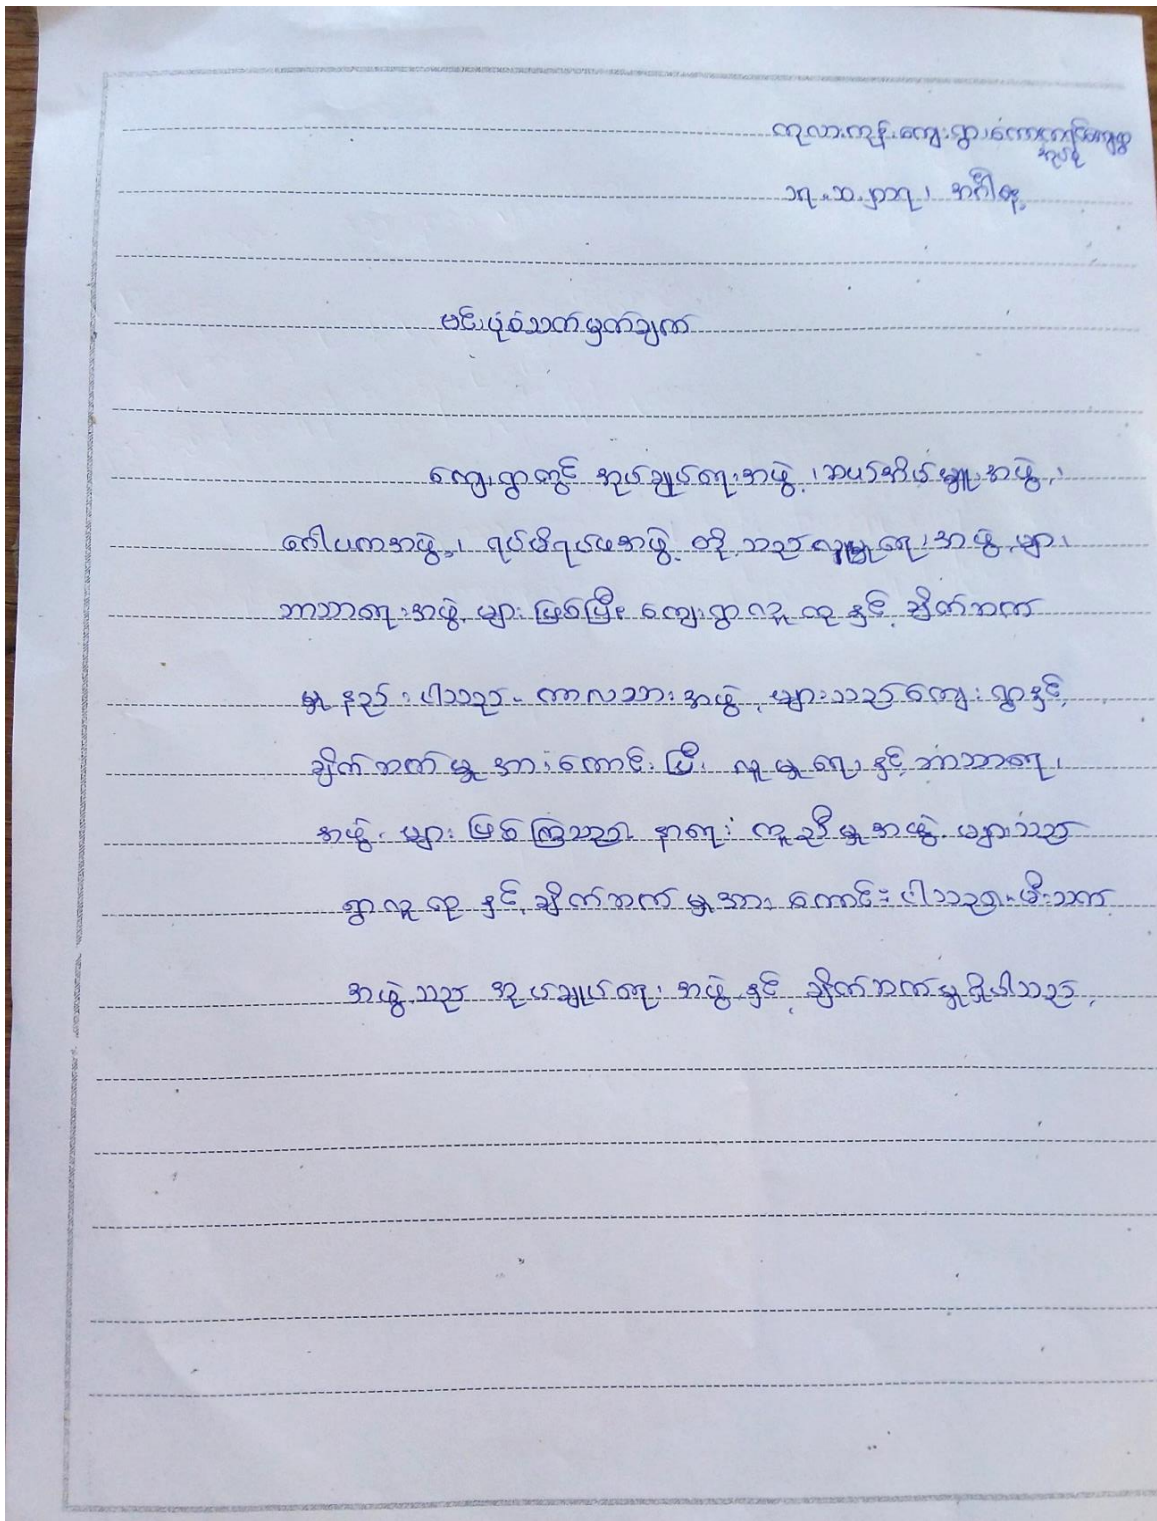 ကုလားကုန်းကျေးရွာ၊ကောကျောင်ကျေးရွာ
အုပ်စု
အင်္ဂါနေ့
ဗင်းပုံစံသက်မှတ်ချက်
ကျေးရွာတွင် အုပ်ချုပ်ရေးအဖွဲ့၊ဆယ်အိမ်မှူးအဖွဲ့၊
ဂေါပကအဖွဲ့၊ ရပ်မိရပ်ဖအဖွဲ့ တို့သည်လူမှုရေးအဖွဲ့များ
ဘာသာရေးအဖွဲ့များဖြစ်ပြီး ကျေးရွာလူထုနှင့် ချိတ်ဆက်
မှုနည်းပါသည်။ ကာလသားအဖွဲ့များသည်ကျေးရွာနှင့်
ချိတ်ဆက်မှုအားကောင်းပြီး လူမှုရေးနှင့်ဘာသာရေး
အဖွဲ့များဖြစ်ကြသည်။ နာရေးကူညီမှုအဖွဲ့များသည်
ရွာလူထုနှင့်ချိတ်ဆက်မှုအားကောင်းပါသည်။မီးသတ်
အဖွဲ့သည် အုပ်ချုပ်ရေးအဖွဲ့နှင့် ချိတ်ဆက်မှုရှိပါသည်